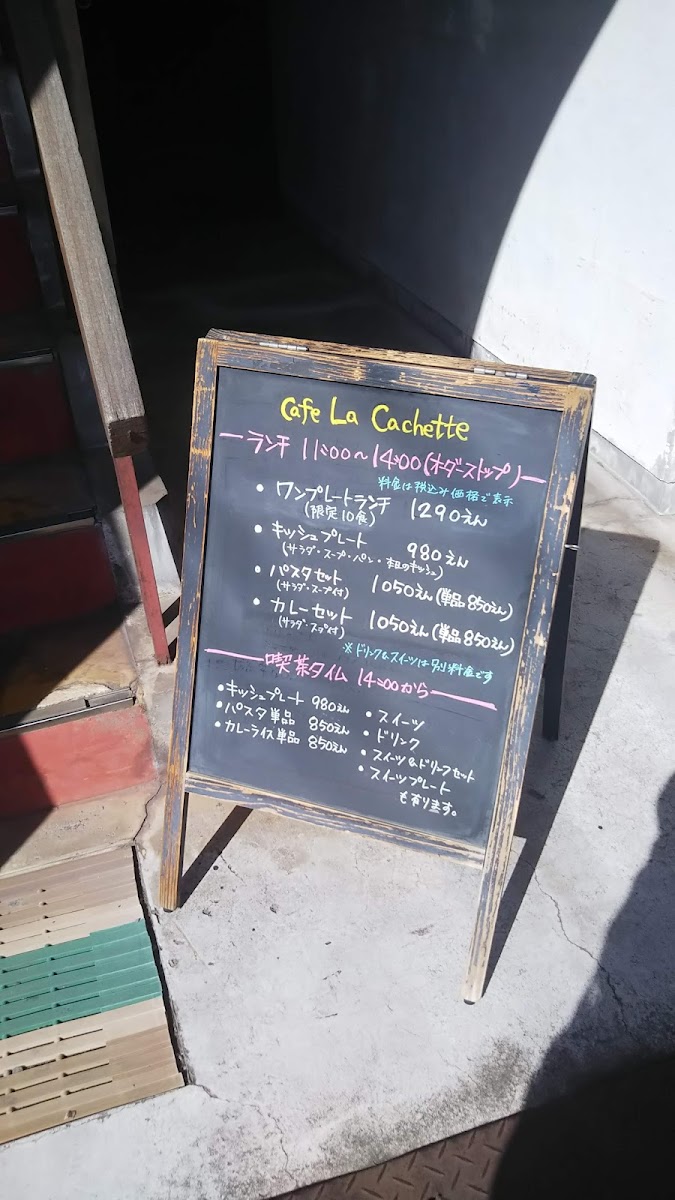 Cafe La Cachette
ランチ 11:00～14:00(オーダーストップ)
料金は税込み価格で表示
・ワンプレートランチ 1290えん
(限定10食)
・キッシュプレート 980えん
(サラダ・スープ・パン・本日のキッシュ)
・パスタセット 1050えん(単品850えん)
(サラダ・スープ付)
・カレーセット 1050えん(単品850えん)
(サラダ・スープ付)
※ドリンク&スイーツは別料金です
喫茶タイム 14:00から
・キッシュプレート 980えん
・パスタ単品 850えん
・カレーライス単品 850えん
・スイーツ
・ドリンク
・スイーツ&ドリンクセット
・スイーツプレート
も有ります。